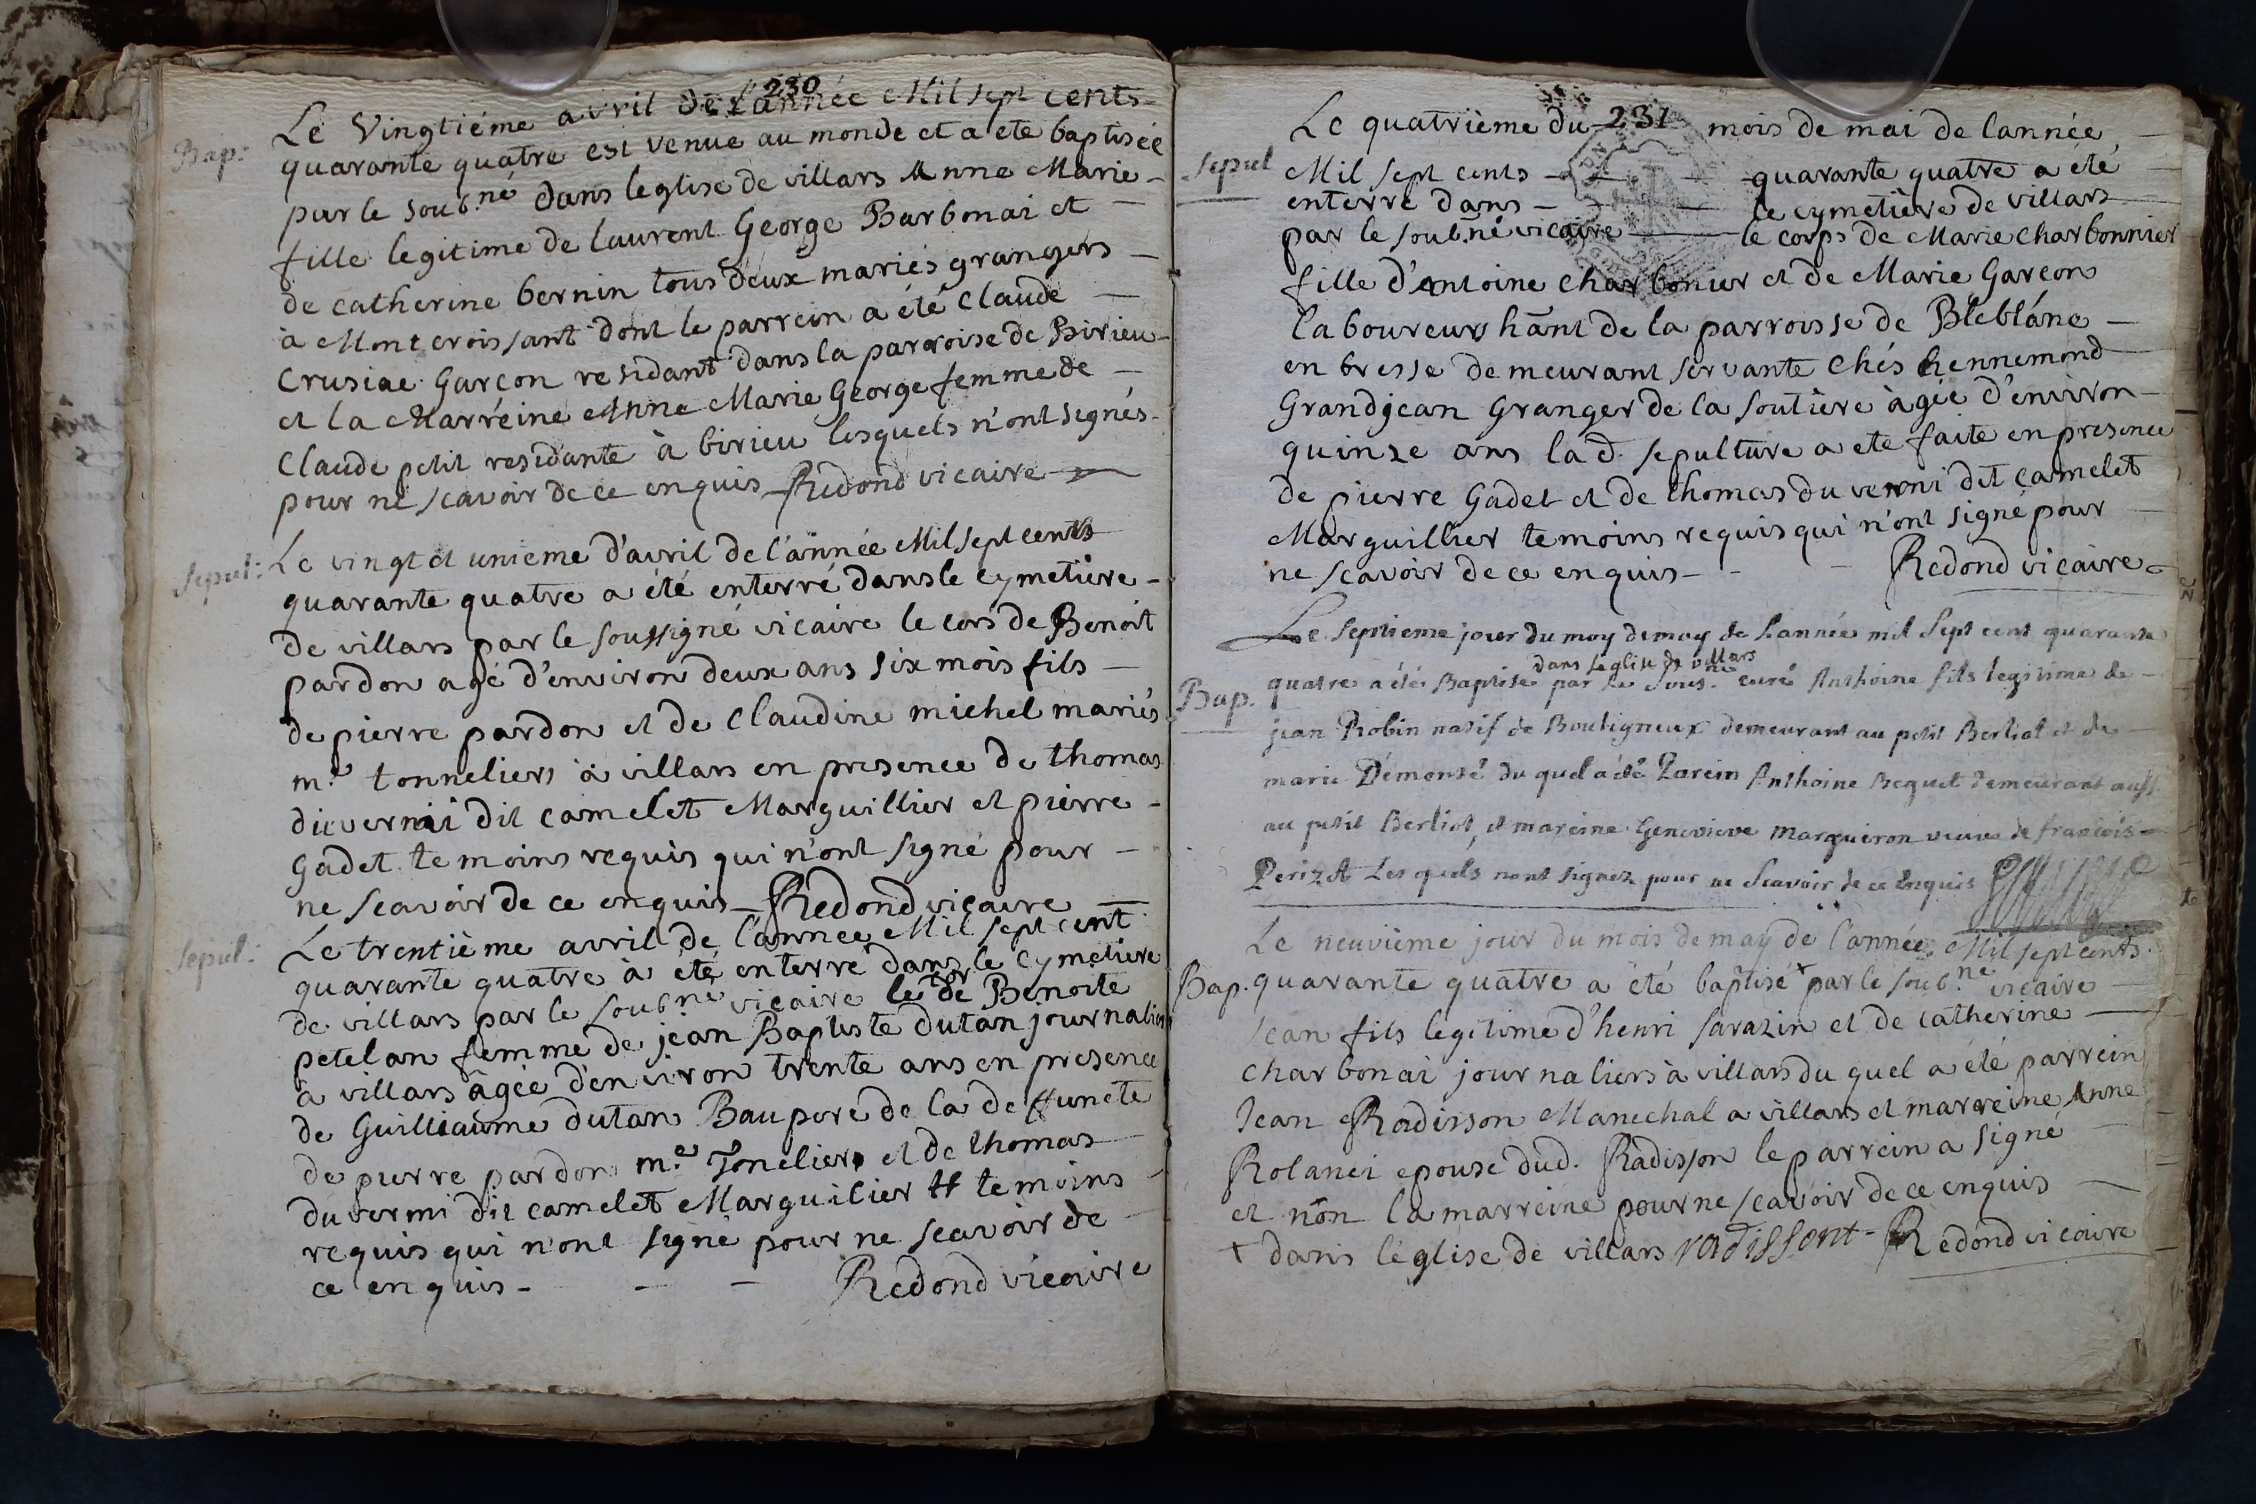 230
Bap:
Le Vingtiéme avril de l'année Mil sept cents
quarante quatre est venue au monde et a ete baptisée
par le soub.né dans leglise de villars Anne Marie
fille legitime de laurent George Barbonai et
de catherine bernin tous deux mariés grangers
à Montcroissant dont le parrein a été Claude
Crusiae Garçon residant dans la parroise de Birieu
et la Marréine Anne Marie George femme de
Claude petit residante à birieu lesquels n'ont signés
pour ne scavoir de ce enquis Redond vicaire
Sepul:
Le vingt et unieme d'avril de l'année Mil sept cents
quarante quatre a été enterré dans le cymetiere
de villars par le soussigné vicaire le cors de Benoit
pardon agé d'environ deux ans six mois fils
de pierre pardon et de Claudine michel mariés
m.e tonneliers à villars en presence de thomas
duvernii dit camelet Marguillier et pierre
Gadet temoins requis qui n'ont signé pour
ne scavoir de ce enquis Redond vicaire
Sepul:
Le trentième avril de l'annee Mil sept cent
quarante quatre à été enterré dans le cymetiere
de villars par le soub.né vicaire le cor de Benoite
petelan femme de jean Baptiste dutan journalier
à villars âgée d'environ trente ans en presence
de Guilliaume dutan Baupere de la deffuncte
de pierre pardon m.e Tonelier et de thomas
duvermi dit camelet Marguilier temoins
requis qui n'ont signé pour ne scavoir de
ce enquis Redond vicaire
231
Sepul
Le quatrième du mois de mai de lannée
Mil sept cents quarante quatre a été
enterré dans le cymetière de villars
par le soub.né vicaire le corps de Marie charbonnier
fille d'Antoine charbonier et de Marie Garçon
laboureurs hânt de la parroisse de Bleblánc
en bresse demeurant servante chés hennemond
Grandjean Granger de la soutière àgée d'environ
quinze ans lad. sepulture a ete faite en presence
de pierre Gadet et de thomas duverni dit camelet
Marguillier temoins requis qui n'ont signé pour
ne scavoir de ce enquis Redond vicaire
Bap.
Le septieme jour du moy de may de Lannée mil sept cent quarante
dans leglise de villars
quatre a été Baptisé par le Sous.né curé Anthoine fils legitime de
jean Robin natif de Bouligneux demeurant au petit Berliot et de
marie Démonté du quel a été Parein Anthoine Bequet demeurant aussi
au petit Berliot, et mareine Genevieve marguiron veuve de francois
Perizet Les quels nont signez pour ne Scavoir de ce Enquis
Bap.
Le neuvième jour du mois de may de l'année Mil sept cents
quarante quatre a été baptisé + par le soub.né vicaire
Jean fils legitime d'henri sarazin et de catherine
charbonai journaliers à villars du quel a été parrein
Jean Radisson Marechal a villars et marreine Anne
Rolanei epouse dud. Radisson le parrein a signé
et non la marreine pour ne scavoir de ce enquis
+ dans l'église de villars radissont Redond vicaire